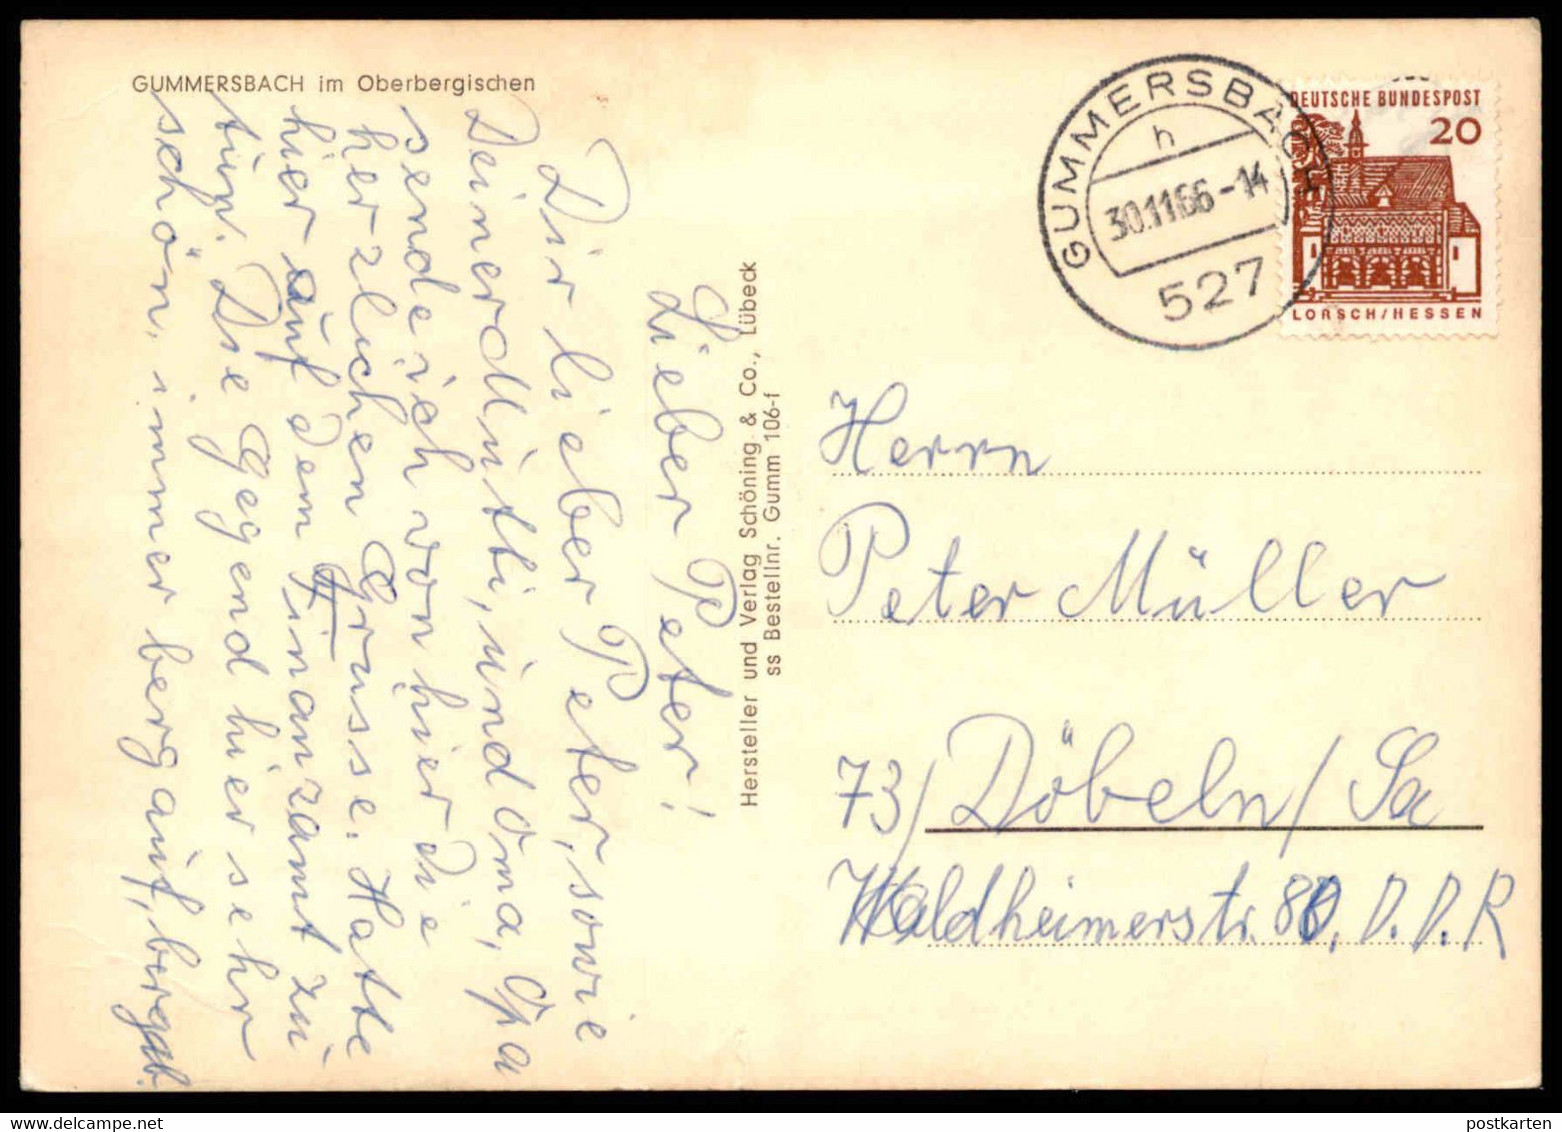 GUMMERSBACH im Oberbergischen
Lieber Peter!
Dir lieber Peter, sowie
Deiner Mutti, und Oma, Opa
sende ich von hier die
herzlichen Grüsse. Hatte
hier auf dem Finanzamt zu
tun. Die Gegend hier sehr
schön, immer bergauf, bergab.
Hersteller und Verlag Schöning & Co., Lübeck
ss Bestellnr. Gumm 106-f
GUMMERSBACH
h
30.11.66-14
527
DEUTSCHE BUNDESPOST
20
LORSCH/HESSEN
Herrn
Peter Müller
73/ Döbeln/Sa
Waldheimerstr. 80. D.D.R
postkarten